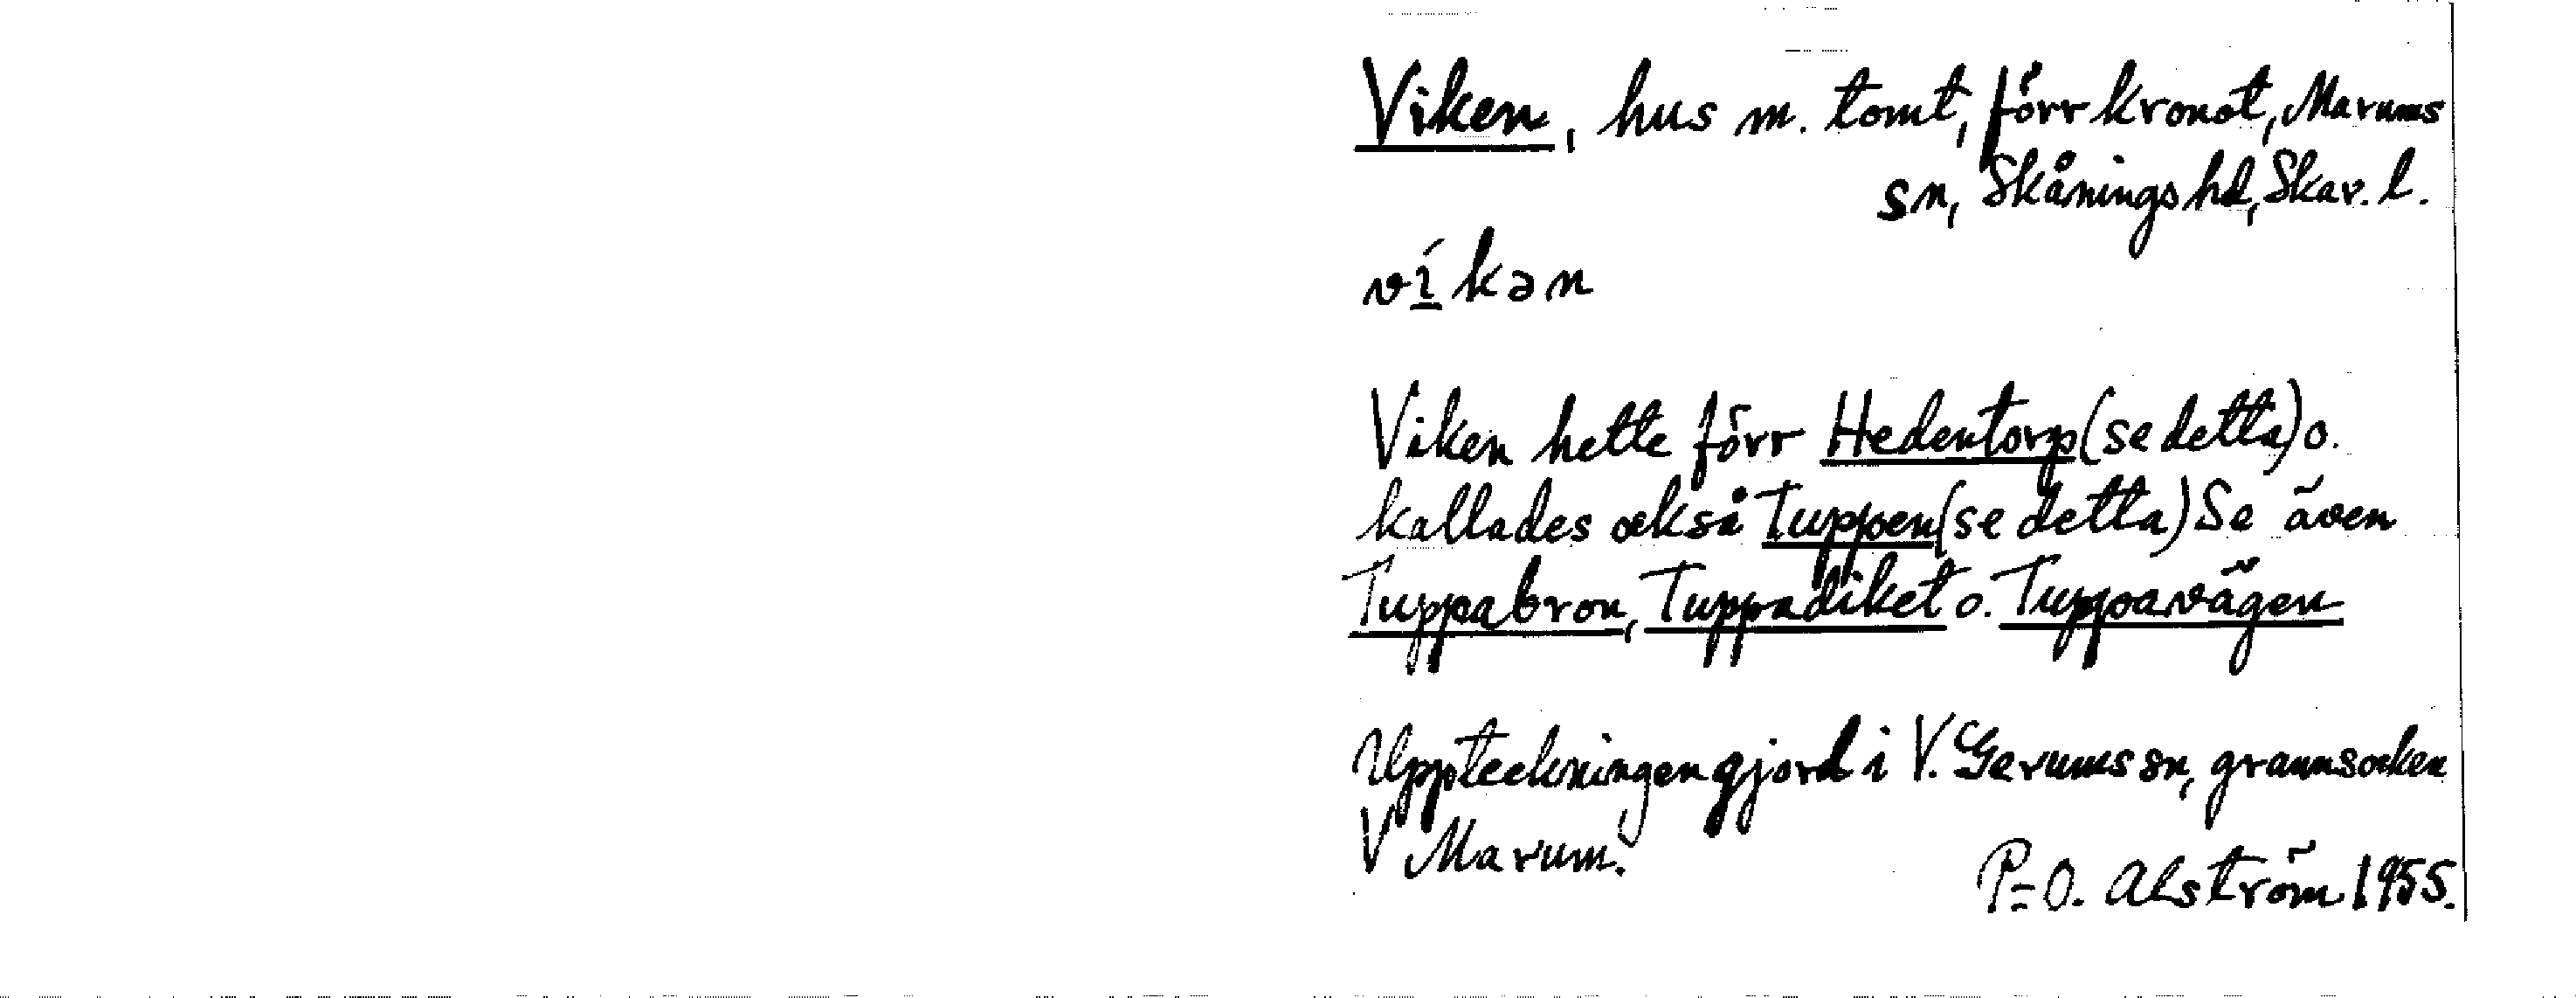 Viken, hus m. tomt, förr kronot, Marums
sn, Skånings hd, Skar. l.
víkən
Viken hette förr Hedentorp (se detta) o.
kallades också Tuppen (se detta) Se även
Tuppabron, Tuppadiket o. Tuppavägen
Uppteckningen gjord i V. Gerums sn, grannsocken
V Marum.
P=O. Alström 1955.